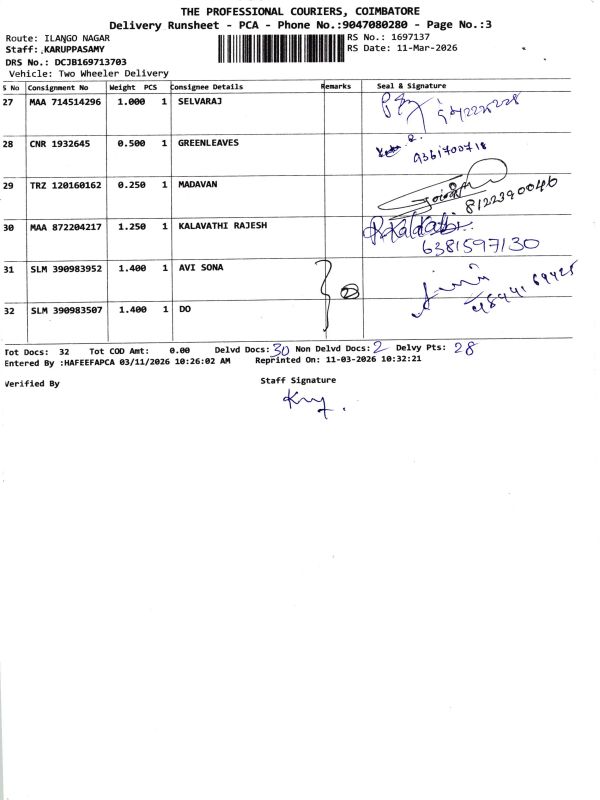 THE PROFESSIONAL COURIERS, COIMBATORE
Delivery Runsheet - PCA - Phone No.:9047080280 - Page No.:3
Route: ILANGO NAGAR
RS No.: 1697137
Staff: KARUPPASAMY
RS Date: 11-Mar-2026
DRS No.: DCJB169713703
Vehicle: Two Wheeler Delivery
S No Consignment No Weight PCS Consignee Details Remarks Seal & Signature
27 MAA 714514296 1.000 1 SELVARAJ
28 CNR 1932645 0.500 1 GREENLEAVES 9361700718
29 TRZ 120160162 0.250 1 MADAVAN 8122390046
30 MAA 872204217 1.250 1 KALAVATHI RAJESH R.Kalavathi 6381597130
31 SLM 390983952 1.400 1 AVI SONA
2
32 SLM 390983507 1.400 1 DO
Tot Docs: 32 Tot COD Amt: 0.00 Delvd Docs: 30 Non Delvd Docs: 2 Delvy Pts: 28
Entered By :HAFEEFAPCA 03/11/2026 10:26:02 AM Reprinted On: 11-03-2026 10:32:21
Verified By
Staff Signature